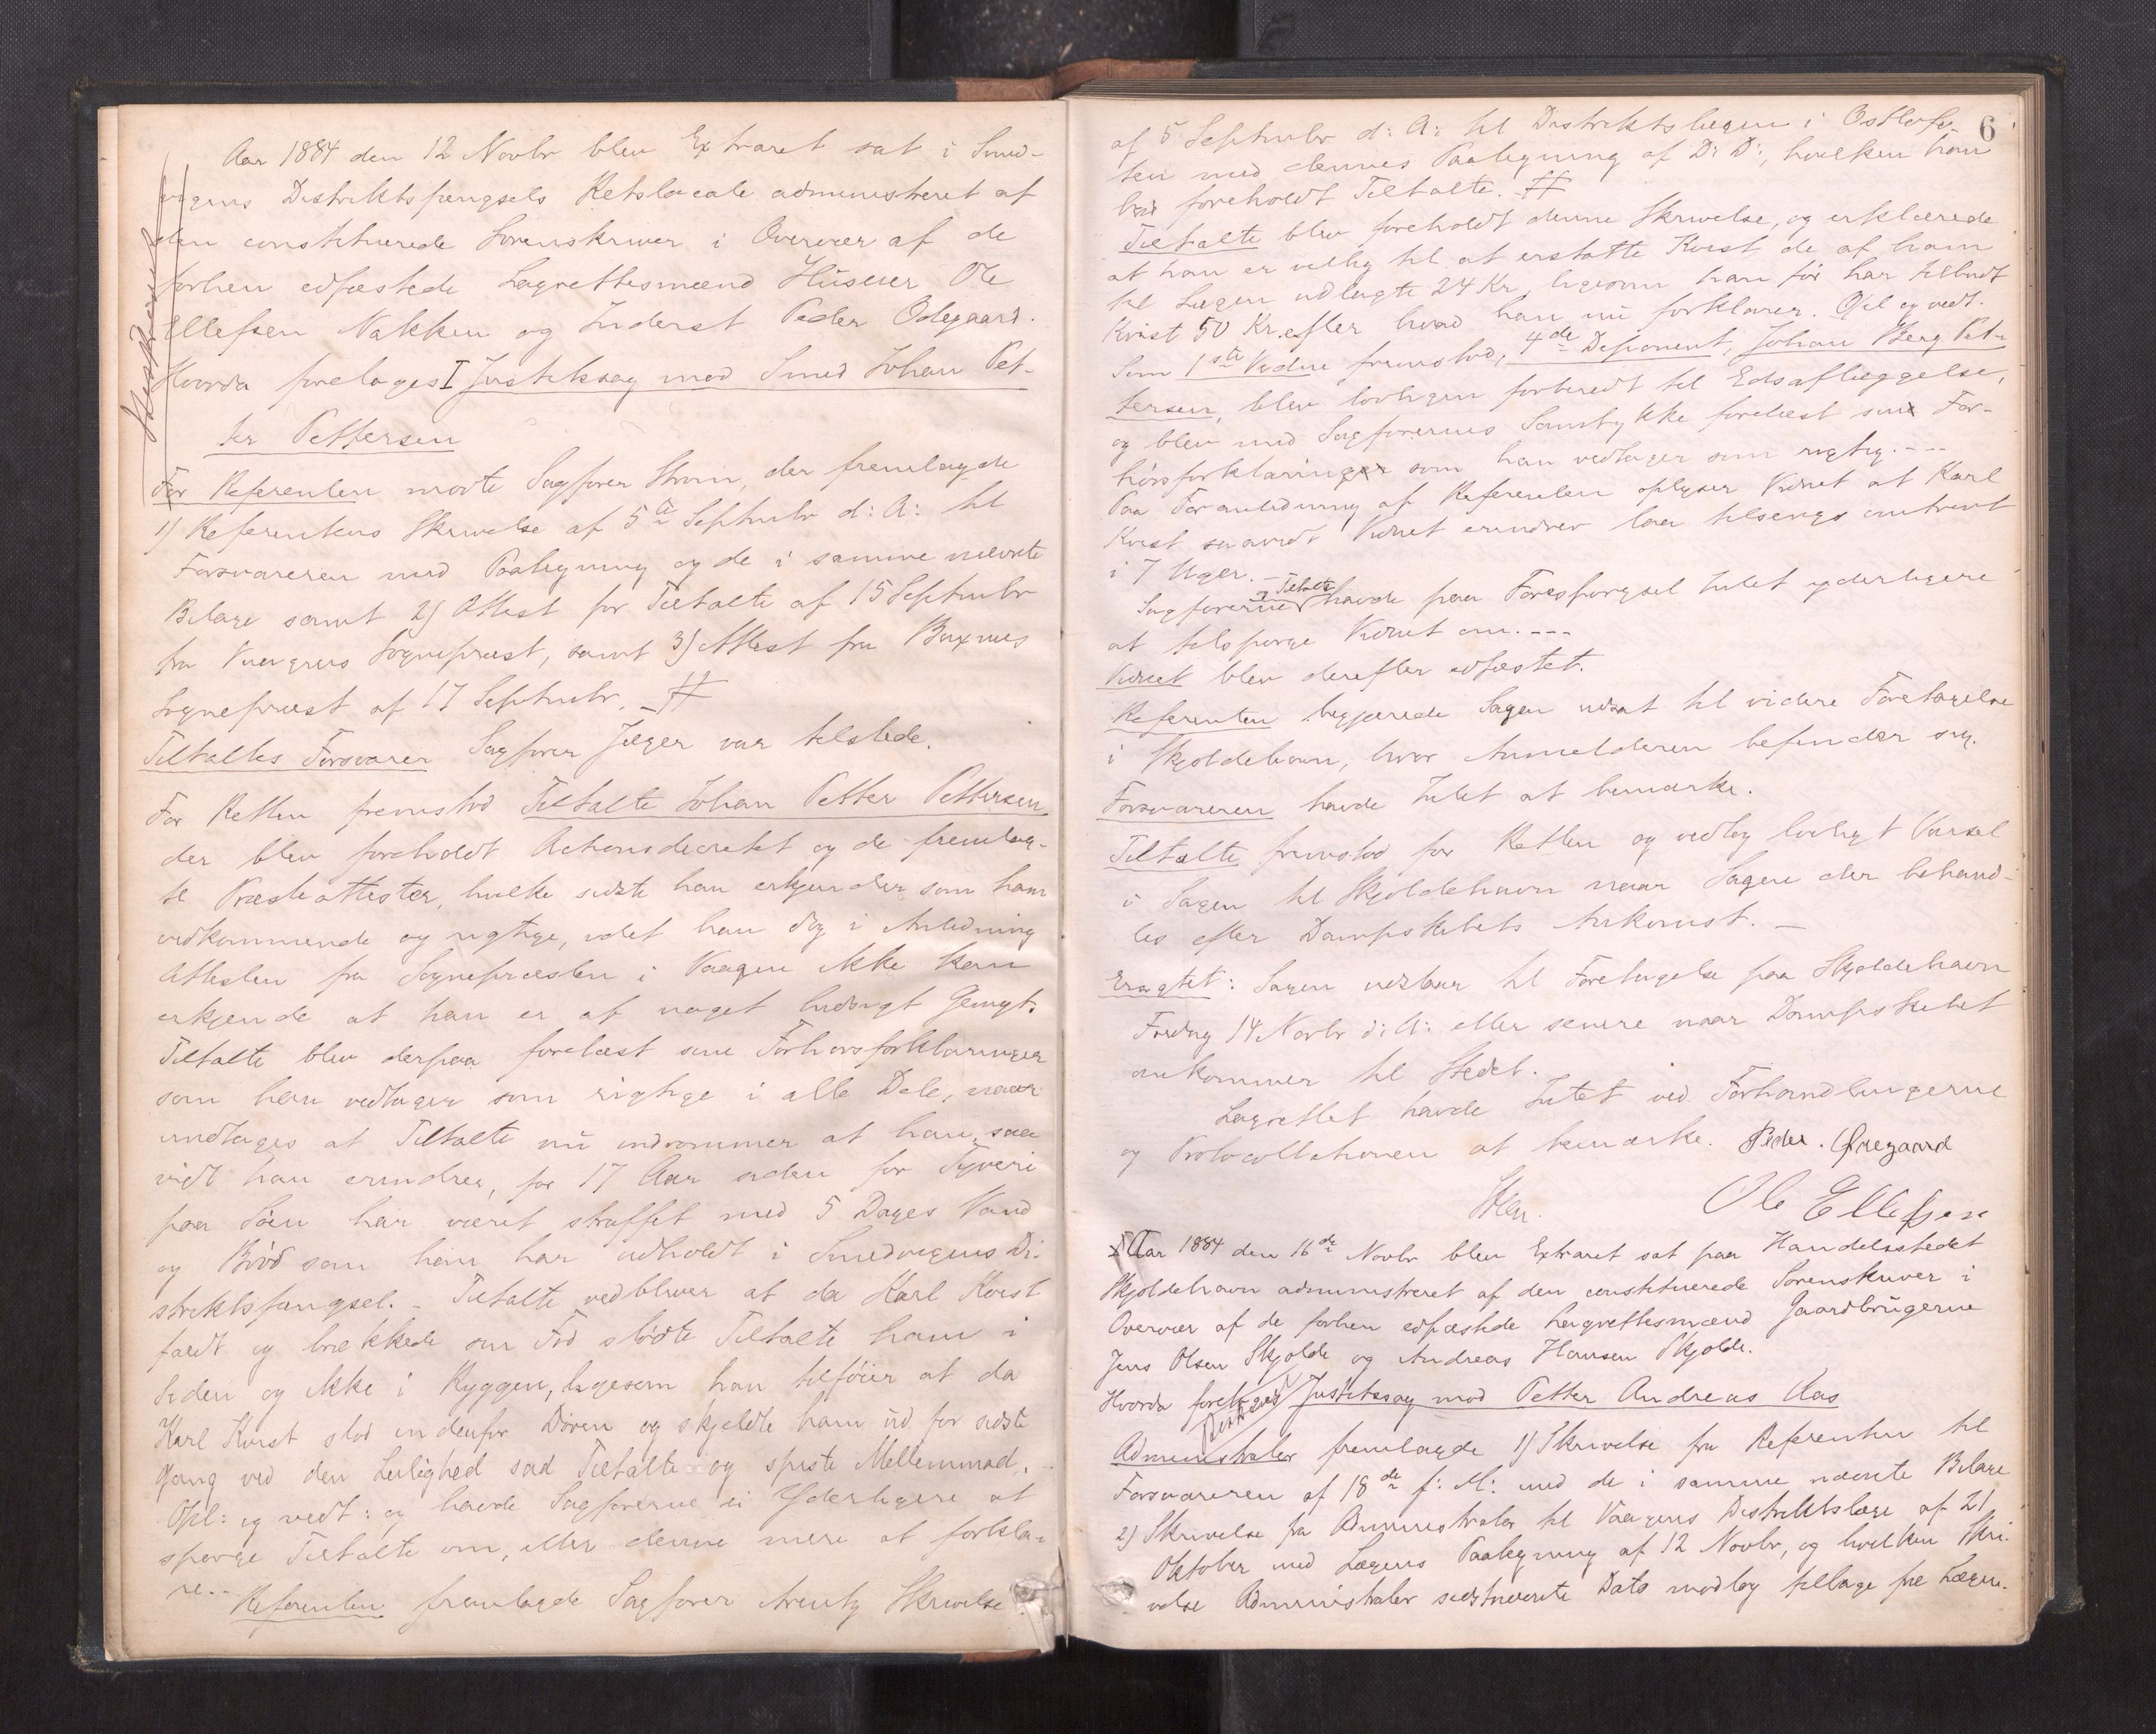 Aar 1884 den 12 Novbr blev Extraret sat i Smed-
vigens Distriktsfængsels Retslocale administreret af
den constituerede Sorenskriver i Overvær af de
forhen edfæstede Lagrettesmænd Husmænd Ole
Ellefsen Nakken og Inderst Peder Ødegaard.
Hvorda foretoges I Justitssag mod Smed Johan Pet-
ter Pettersen
For Referenten mødte Sagfører Strøm, der fremlagde
1) Referentens Skrivelse af 5te Septmbr d: A: til
Forsvareren med Paategning og de i samme nævnte
Bilage samt 2) Attest for Tiltalte af 15 Septmbr
fra Vaagens Sogneprest, samt 3) Attest fra Buxnes
Sogneprest af 17 Septmbr. #
Tiltaltes Forsvarer Sagfører Jæger var tilstede.
For Retten fremstod Tiltalte Johan Petter Pettersen
der blev foreholdt Actionsdecretet og de fremlag-
te Præsteattester, hvilke sidste han erkjender som ham
vedkommende og rigtige, idet han dog i Anledning
Attesten fra Sognepræsten i Vaagen ikke kan
erkjende at han er af noget hidsigt Gemyt.
Tiltalte blev derpaa forelæst sine Forhørsforklaringer
som han vedtager som rigtige i alle Dele, naar
undtages at Tiltalte nu indrømmer at han, saa
vidt han erindrer, for 17 Aar siden for Tyveri
paa Søen har været straffet med 5 Dages Vand
og Brød som han har udholdt i Smedvigens Di-
striktsfængsel. - Tiltalte vedbliver at da Karl Kvist
faldt og brækkede sin Fod stødte Tiltalte ham i
Siden og ikke i Ryggen, ligesom han tilføier at da
Karl Kvist stod indenfor Døren og skjeldte ham ud for sidste
Gang ved den Leilighed sad Tiltalte og spiste Mellemmad.
Opl: og vedt: og havde Sagførerne ei Yderligere at
spørge Tiltalte om, eller denne mere at forkla-
re. --
Referenten fremlagde Sagfører Arentz Skrivelse
6
af 5 Septmbr d: A: til Distriktslægen i Ostlofo-
ten med dennes Paategning af D: D:, hvilken han
foreholdt Tiltalte. #
Tiltalte blev foreholdt denne Skrivelse, og erklærede
at han er villig til at erstatte Kvist de af ham
til Lægen udlagte 24 Kr, ligesom han før har tilbudt
Kvist 50 Kr. efter hvad han nu forklarer. Opl og vedt.
Som 1ste Vidne fremstod, 4de Deponent, Johan Berg Pet-
tersen, blev lovligen forberedt til Edsaflæggelse,
og blev med Sagførernes Samtykke forelæst sin For-
hørsforklaring som han vedtager som rigtig. ---
Paa Foranledning af Referenten oplyser Vidnet at Karl
Kvist saavidt Vidnet erindrer laa tilsengs omtrent
i 7 Uger. -
Sagførerne og Tiltalte havde paa Forespørgsel Intet yderligere
at tilspørge Vidnet om. ---
Vidnet blev derefter edfæstet.
Referenten begjærede Sagen udsat til videre Foretagelse
i Skjoldehavn, hvor Anmelderen befinder sig.
Forsvareren havde Intet at bemærke.
Tiltalte fremstod for Retten og vedtog lovligt Varsel
i Sagen til Skjoldehavn naar Sagen der behand-
les efter Dampskibets Ankomst. -
Eragtet: Sagen udstaar til Foretagelse paa Skjoldehavn
Fredag 14 Novbr d: A: eller senere naar Dampskibet
ankommer til Stedet.
Lagrettet havde Intet ved Forhandlingerne
og Protocollationen at bemærke. Peder. Øregaard
Ole Ellefsen
Aar 1884 den 16de Novbr blev Extraret sat paa Handelsstedet
Skjoldehavn administreret af den constituerede Sorenskriver i
Overvær af de forhen edfæstede Lagrettesmænd Gaardbrugerne
Jens Olsen Skjolde og Andreas Hansen Skjolde.
Hvorda foretoges I Justitssag mod Petter Andreas Aas
Administrator fremlagde 1) Skrivelse fra Referenten til
Forsvareren af 18de f: M: med de i samme nævnte Bilage
2) Skrivelse fra Administrator til Vaagens Distriktslæge af 21
Oktober med Lægens Paategning af 12 Novbr, og hvilken Skri-
velse Administrator sidstnævnte Dato modtog tilbage fra Lægen.